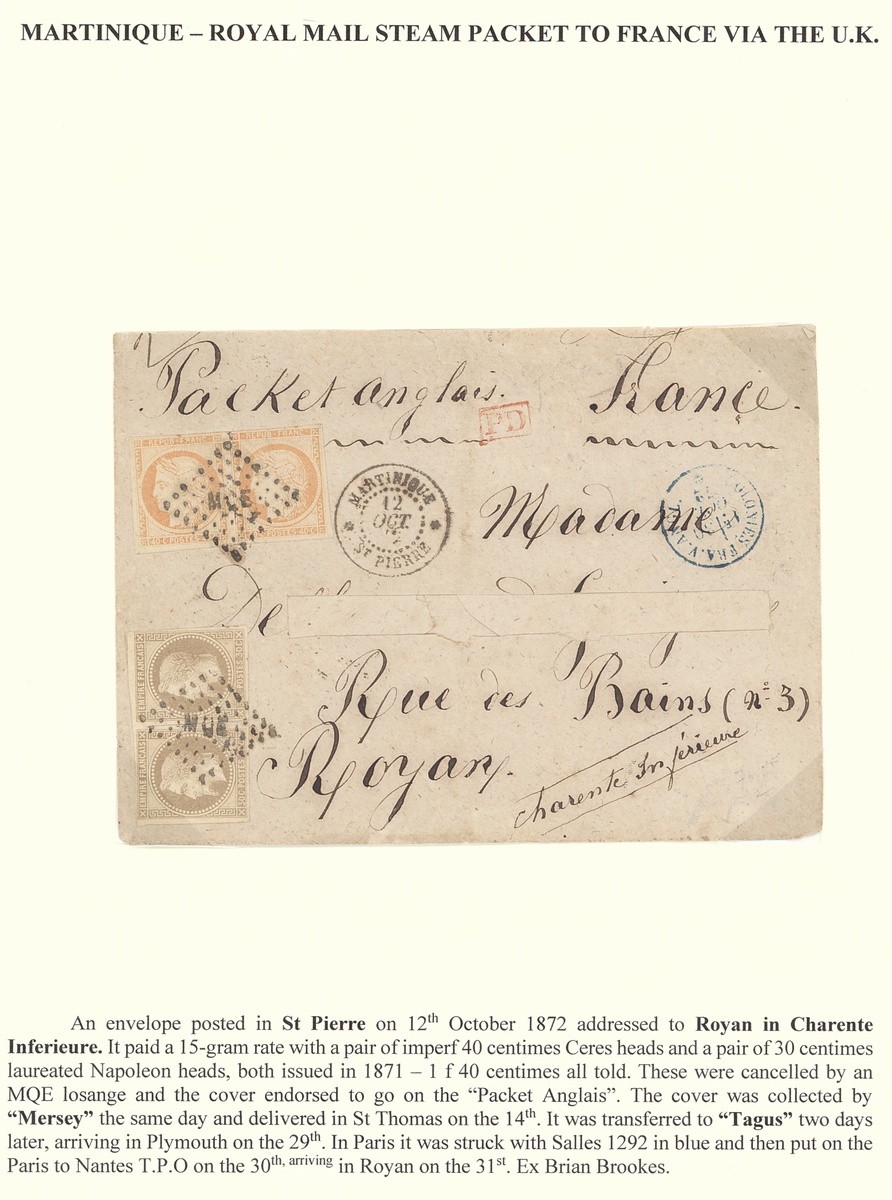 MARTINIQUE – ROYAL MAIL STEAM PACKET TO FRANCE VIA THE U.K.
Packet anglais. France.
PD
REPUB·FRANC· REPUB·FRANC·
40·C·POSTES 40·C
MQE
MARTINIQUE
12
OCT.
ST PIERRE
Madame
De
EMPIRE FRANÇAIS
POSTES 30C
MQE
EMPIRE FRANÇAIS
30C POSTES
Rue des Bains (no 3)
Royan.
Charente Inférieure
An envelope posted in St Pierre on 12th October 1872 addressed to Royan in Charente
Inferieure. It paid a 15-gram rate with a pair of imperf 40 centimes Ceres heads and a pair of 30 centimes
laureated Napoleon heads, both issued in 1871 – 1 f 40 centimes all told. These were cancelled by an
MQE losange and the cover endorsed to go on the “Packet Anglais”. The cover was collected by
“Mersey” the same day and delivered in St Thomas on the 14th. It was transferred to “Tagus” two days
later, arriving in Plymouth on the 29th. In Paris it was struck with Salles 1292 in blue and then put on the
Paris to Nantes T.P.O on the 30th, arriving in Royan on the 31st. Ex Brian Brookes.